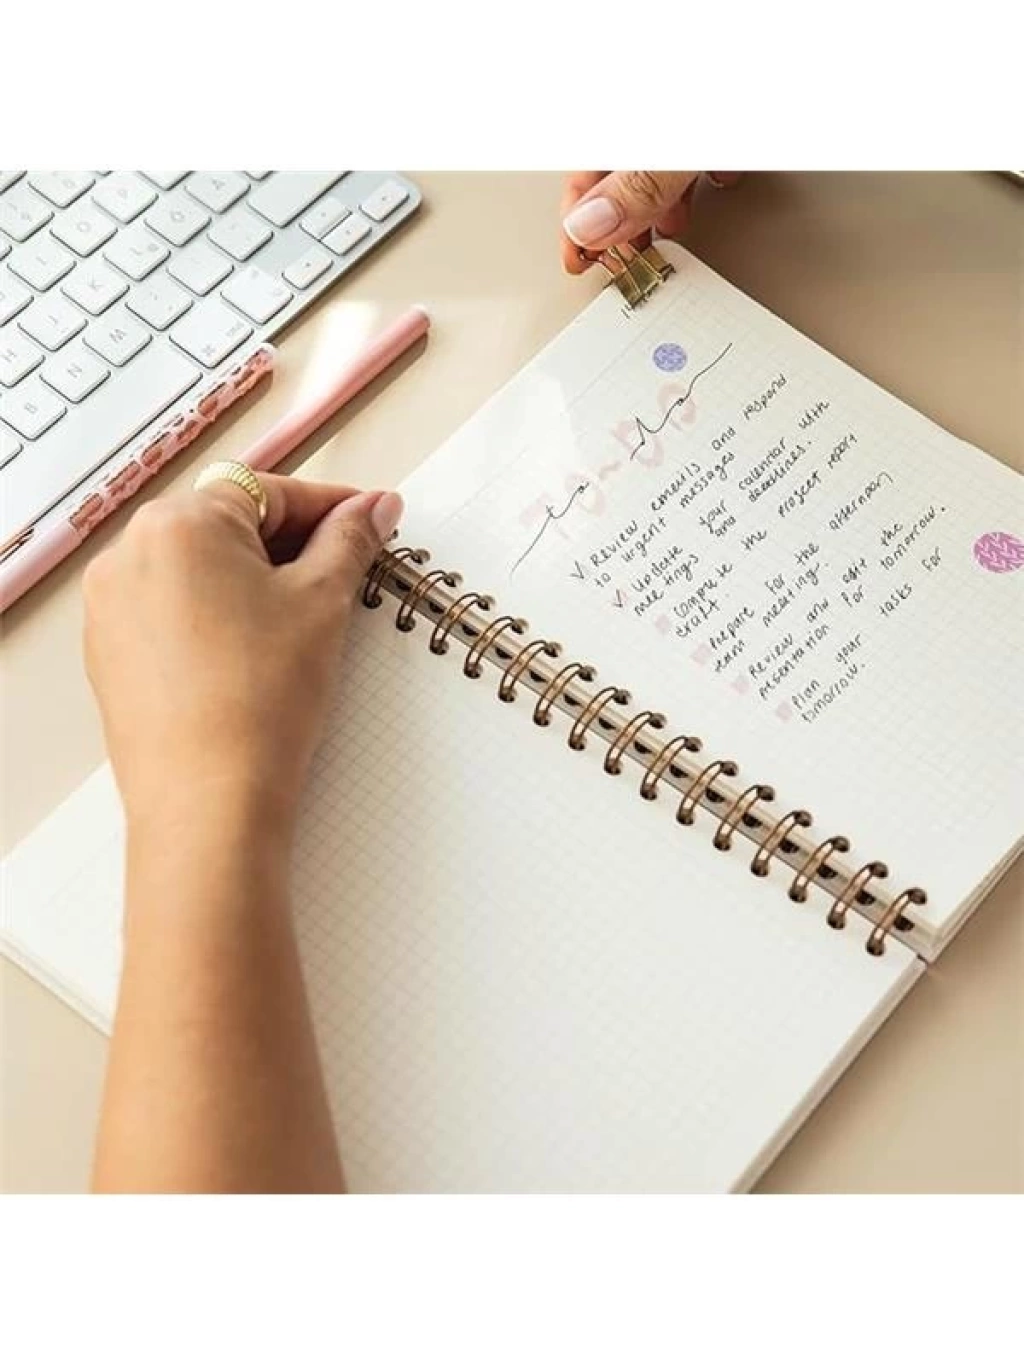 to-do
TO-DO
√ Review emails and respond
to urgent messages
√ Update your calendar with
meetings and deadlines.
Complete the project report
draft.
Prepare for the afternoon
team meeting.
Review and edit the
presentation for tomorrow.
Plan your tasks for
tomorrow.
P
O
L
K
M
N
H
B